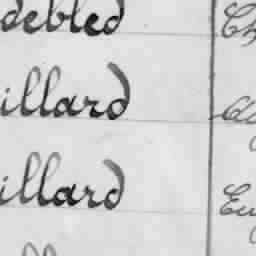 debled Ch
illard
illard Eu